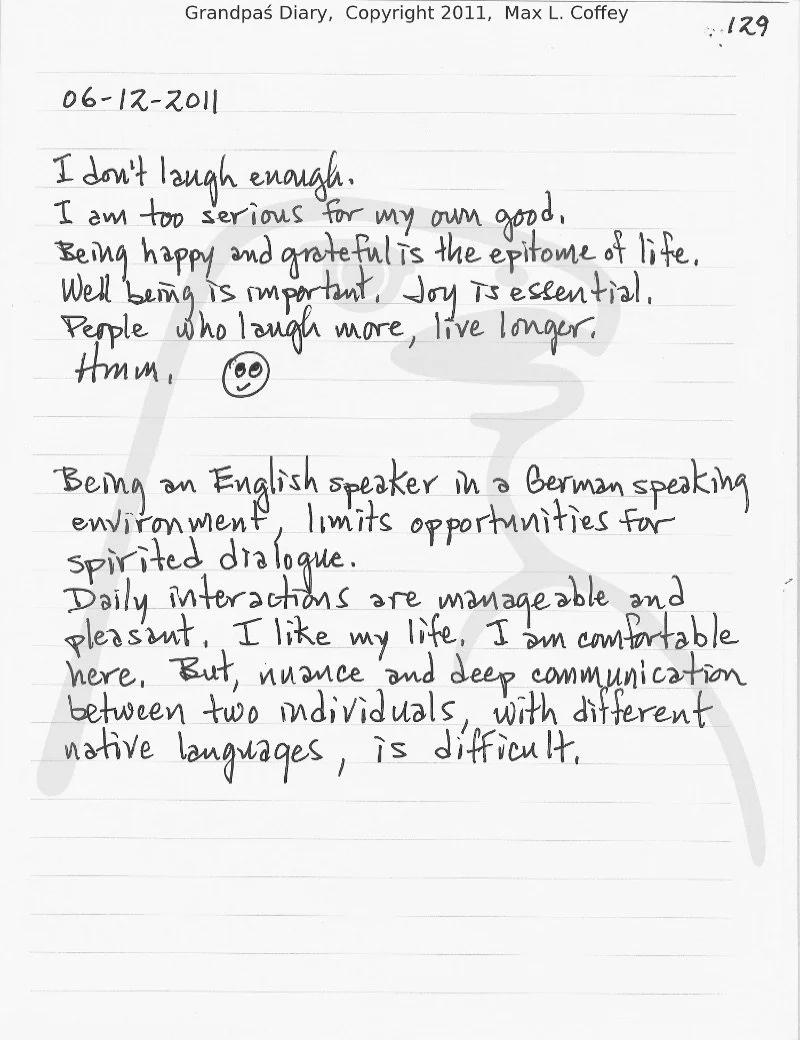 Grandpaś Diary, Copyright 2011, Max L. Coffey
129
06-12-2011
I don't laugh enough.
I am too serious for my own good.
Being happy and grateful is the epitome of life.
Well being is important. Joy is essential.
People who laugh more, live longer.
Hmm.
Being an English speaker in a German speaking
environment, limits opportunities for
spirited dialogue.
Daily interactions are manageable and
pleasant. I like my life. I am comfortable
here. But, nuance and deep communication
between two individuals, with different
native languages, is difficult.